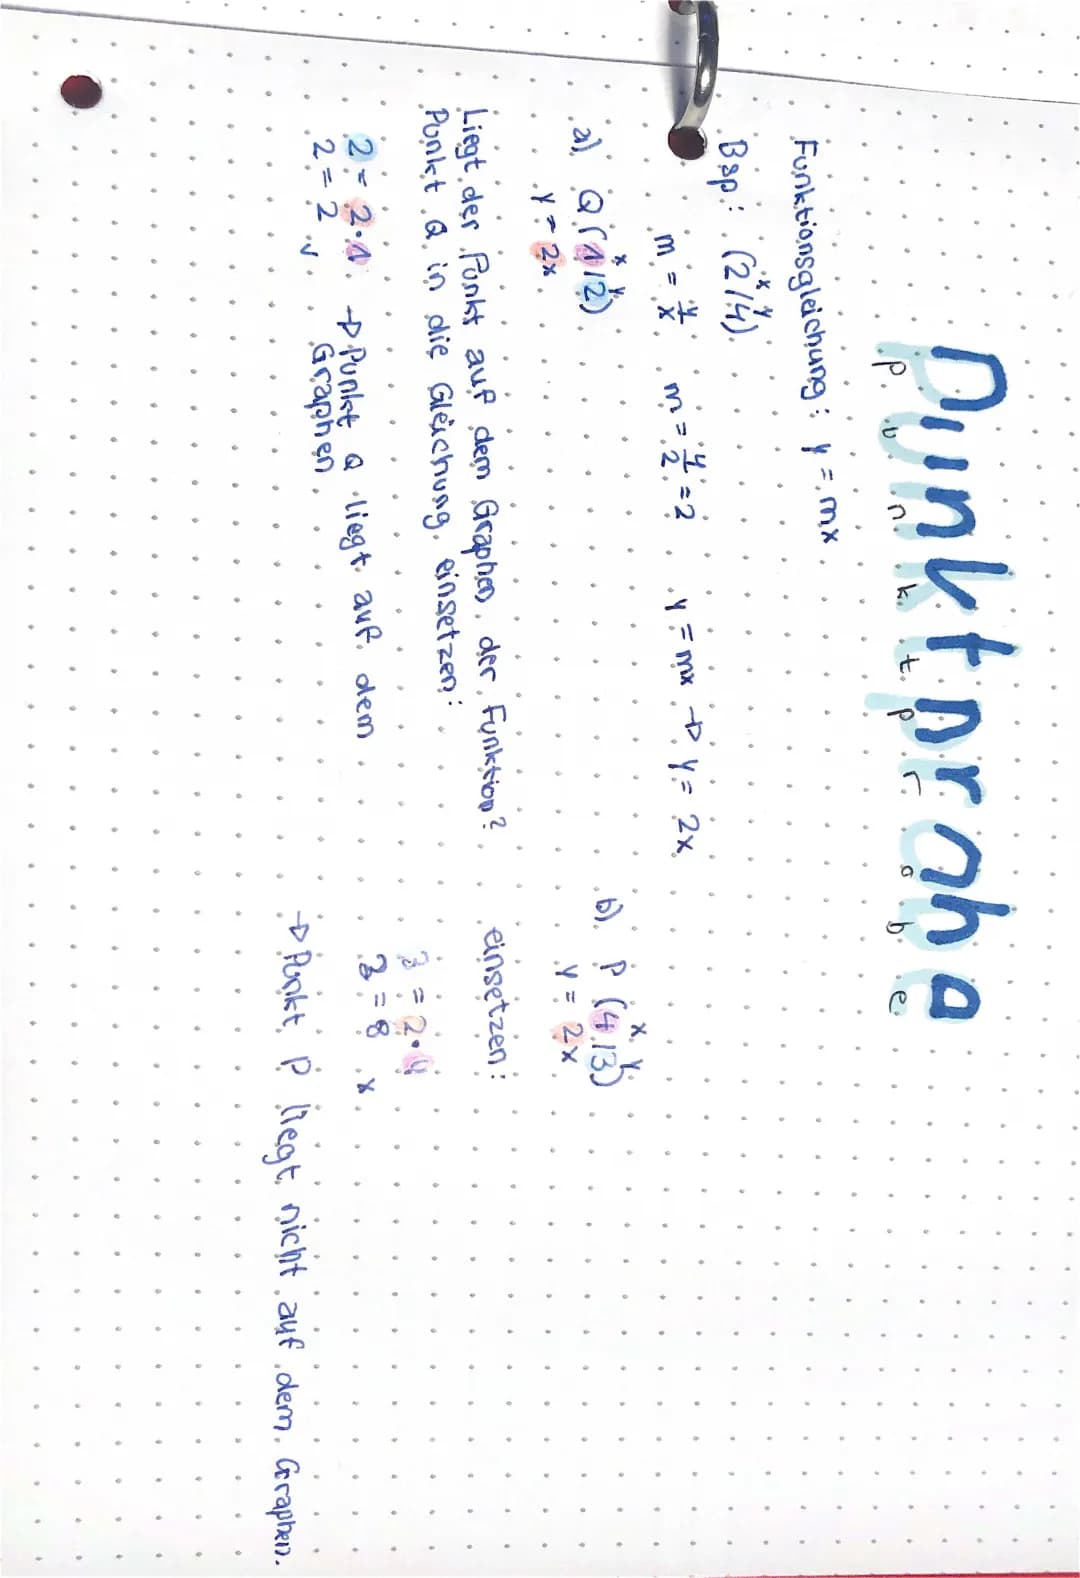 Punktprobe
punktprobe
Funktionsgleichung: y = mx
Bsp: (2/4)
x y
m = y/x m = 4/2 = 2 y = mx → y = 2x
a) Q (1/2)
x y
y = 2x
b) P (4/3)
x y
y = 2x
Liegt der Punkt auf dem Graphen der Funktion?
Punkt Q in die Gleichung einsetzen:
2 = 2·1
2 = 2 ✓
→ Punkt Q liegt auf dem
Graphen
einsetzen:
3 = 2·4
3 = 8 x
→ Punkt P liegt nicht auf dem Graphen.